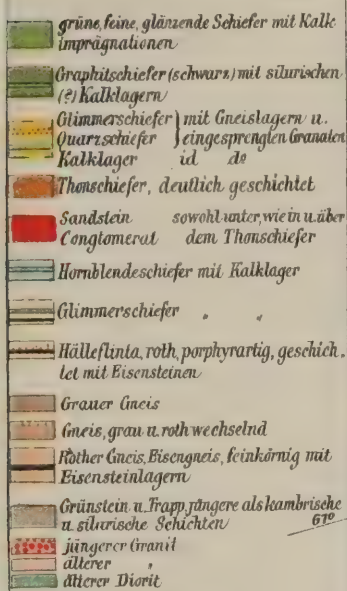 grüne, feine, glänzende Schiefer mit Kalk
imprägnationen
Graphitschiefer (schwarz) mit silurischen
(?) Kalklagern
Glimmerschiefer } mit Gneislagern u.
Quarzschiefer } eingesprengten Granaten
Kalklager id do
Thonschiefer, deutlich geschichtet
Sandstein sowohl unter, wie in u. über
Conglomerat dem Thonschiefer
Hornblendeschiefer mit Kalklager
Glimmerschiefer " "
Hälleflinta, roth, porphyrartig, geschich.
tet mit Eisensteinen
Grauer Gneis
Gneis, grau u. roth wechselnd
Rother Gneis, Eisengneis, feinkörnig mit
Eisensteinlagern
Grünstein u. Trapp, jüngere als kambrische
u. silurische Schichten
61°
jüngerer Granit
älterer "
älterer Diorit